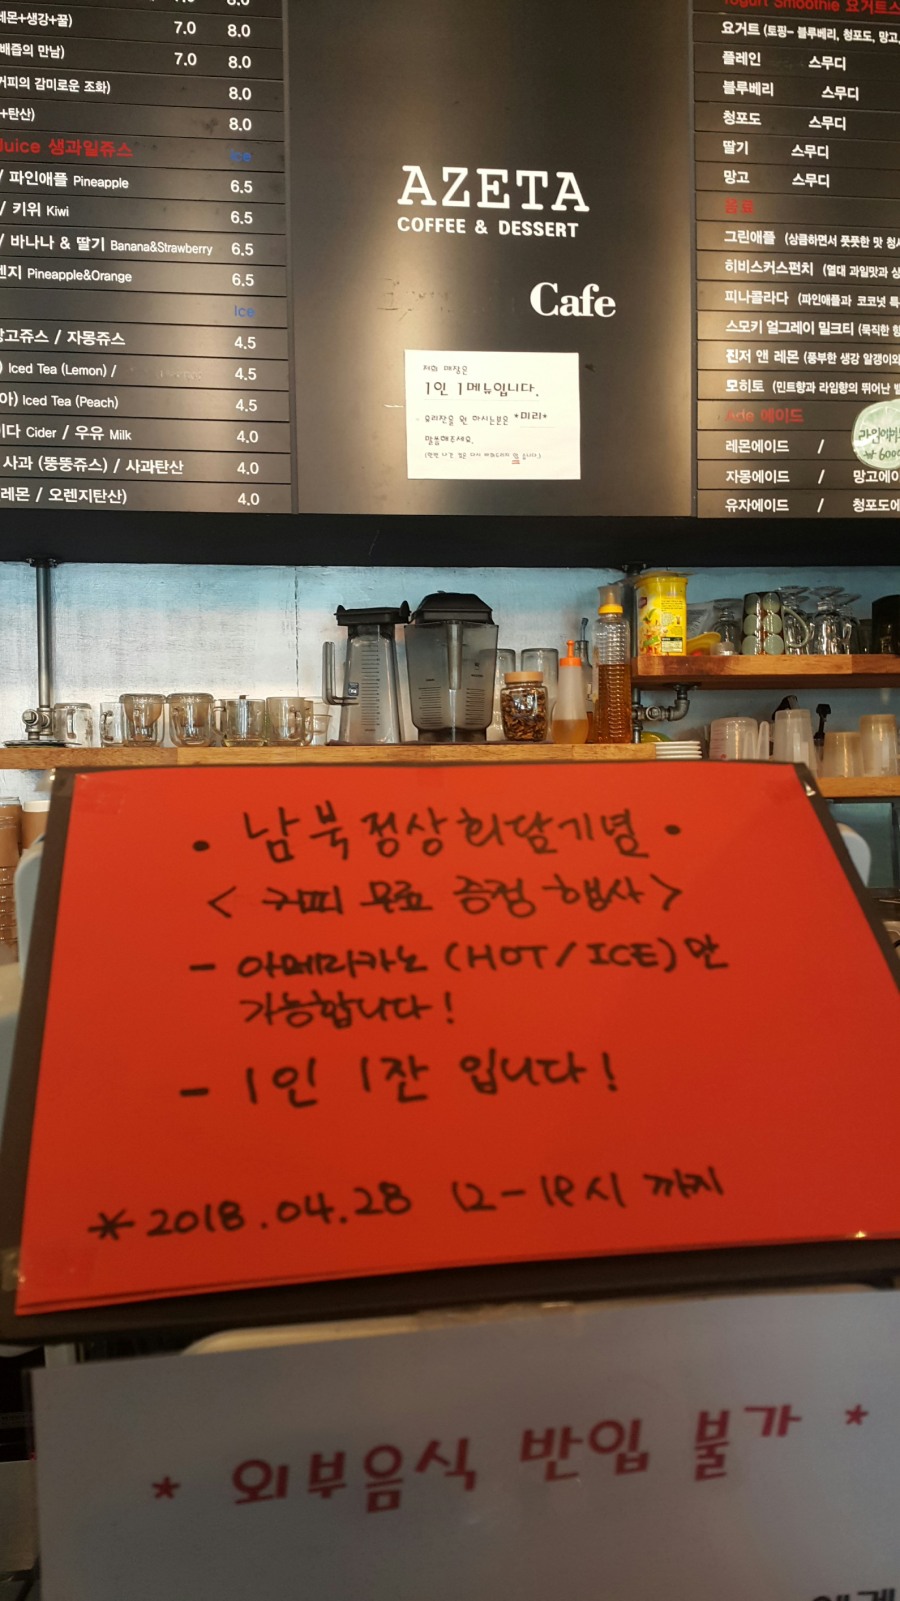 8.0
레몬+생강+꿀) 7.0 8.0
배즙의 만남) 7.0 8.0
커피의 감미로운 조화) 8.0
+탄산) 8.0
Juice 생과일쥬스 Ice
/ 파인애플 Pineapple 6.5
/ 키위 Kiwi 6.5
/ 바나나 & 딸기 Banana&Strawberry 6.5
Pineapple&Orange 6.5
Ice
망고쥬스 / 자몽쥬스 4.5
) Iced Tea (Lemon) / 4.5
) Iced Tea (Peach) 4.5
Cider / 우유 Milk 4.0
사과 (뚱뚱쥬스) / 사과탄산 4.0
레몬 / 오렌지탄산) 4.0
AZETA
COFFEE & DESSERT
Cafe
저희 매장은
1인 1메뉴입니다.
유리잔을 원하시는분은 *미리*
말씀해주세요.
Yogurt Smoothie 요거트스
요거트 (토핑- 블루베리, 청포도, 망고,
플레인 스무디
블루베리 스무디
청포도 스무디
딸기 스무디
망고 스무디
음료
그린애플 (상큼하면서 풋풋한 맛 청사
히비스커스펀치 (열대 과일맛과 상
피나콜라다 (파인애플과 코코넛 특
스모키 얼그레이 밀크티 (묵직한 향
진저 앤 레몬 (풍부한 생강 알갱이와
모히토 (민트향과 라임향의 뛰어난 밸
Ade 에이드
레몬에이드 /
자몽에이드 / 망고에이
유자에이드 / 청포도에
라임에이드
₩6000
• 남북정상회담기념 •
< 커피 무료 증정 행사 >
- 아메리카노 (HOT / ICE) 만
가능합니다!
- 1인 1잔 입니다!
* 2018.04.28 12-18시 까지
* 외부음식 반입 불가 *